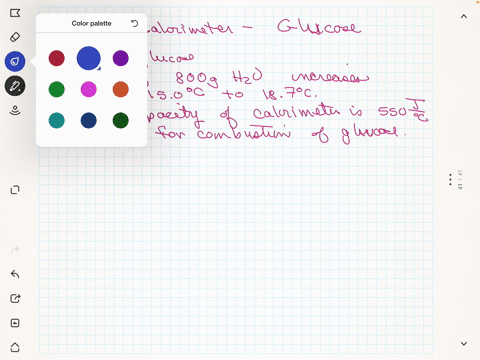 Color palette
Calorimeter - Glucose
glucose
800g H2O increases
15.0°C to 18.7°C.
capacity of calorimeter is 550 J/°C
for combustion of glucose.
41 / 41